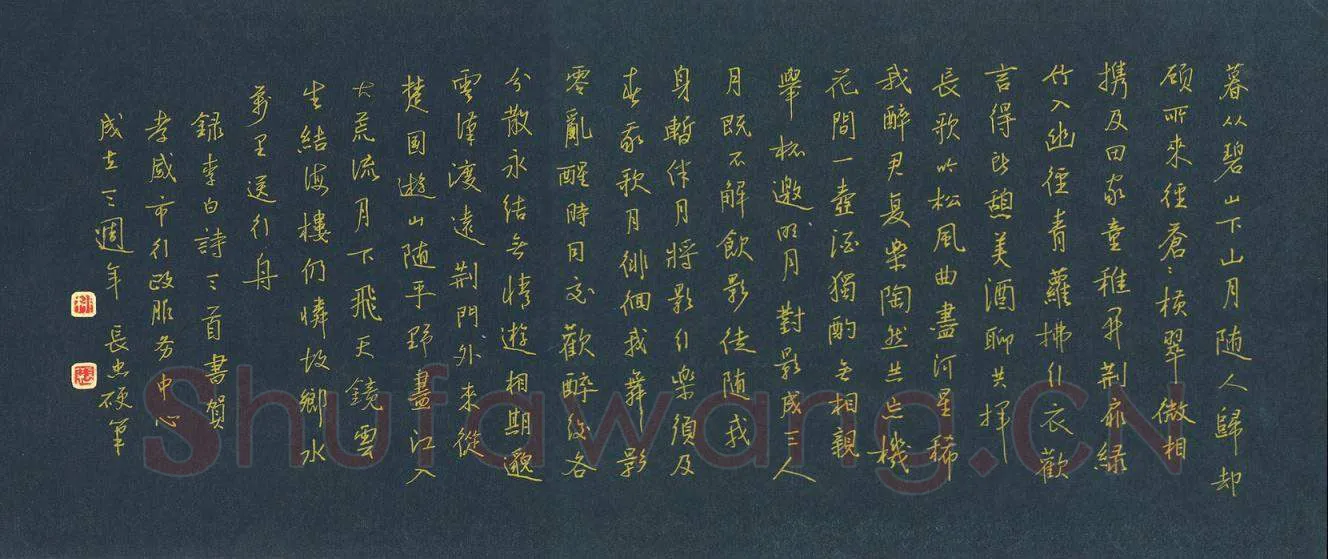 暮从碧山下山月随人歸却
頋所來徑蒼々橫翠微相
携及田家童稚開荆扉緑
竹入幽徑青蘿拂行衣歡
言得所憩美酒聊共揮
長歌吟松風曲盡河星稀
我醉君复樂陶然共忘機
花間一壺酒獨酌無相親
舉杯邀明月對影成三人
月既不解飲影徒随我
身暫伴月將影行樂須及
春我歌月徘徊我舞影
零亂醒時同交歡醉後各
分散永結無情遊相期邈
雲漢渡遠荆門外來從
楚国遊山随平野盡江入
大荒流月下飛天鏡雲
生結海樓仍憐故鄉水
萬里送行舟
録李白詩三首書賀
孝感市行政服务中心
成立三週年 長忠硬筆
Shufawang.CN